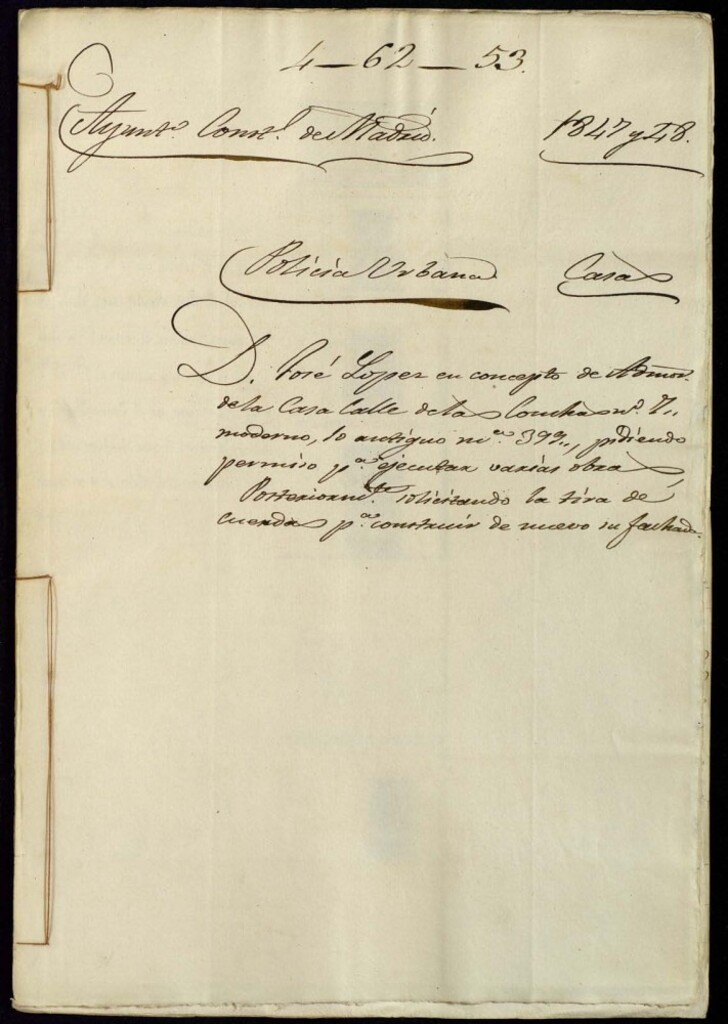 4 — 62 — 53.
Ayunto. Constl. de Madrid. 1847 y 48.
Policía Urbana Casas
D. José Lopez en concepto de Admor.
de la Casa Calle de la Concha no. 7,,
moderno, antiguo 392,, pidiendo
permiso pa. ejecutar varias obras
Posteriormte. solicitando la tira de
cuerdas pa. construir de nuevo su fachada.